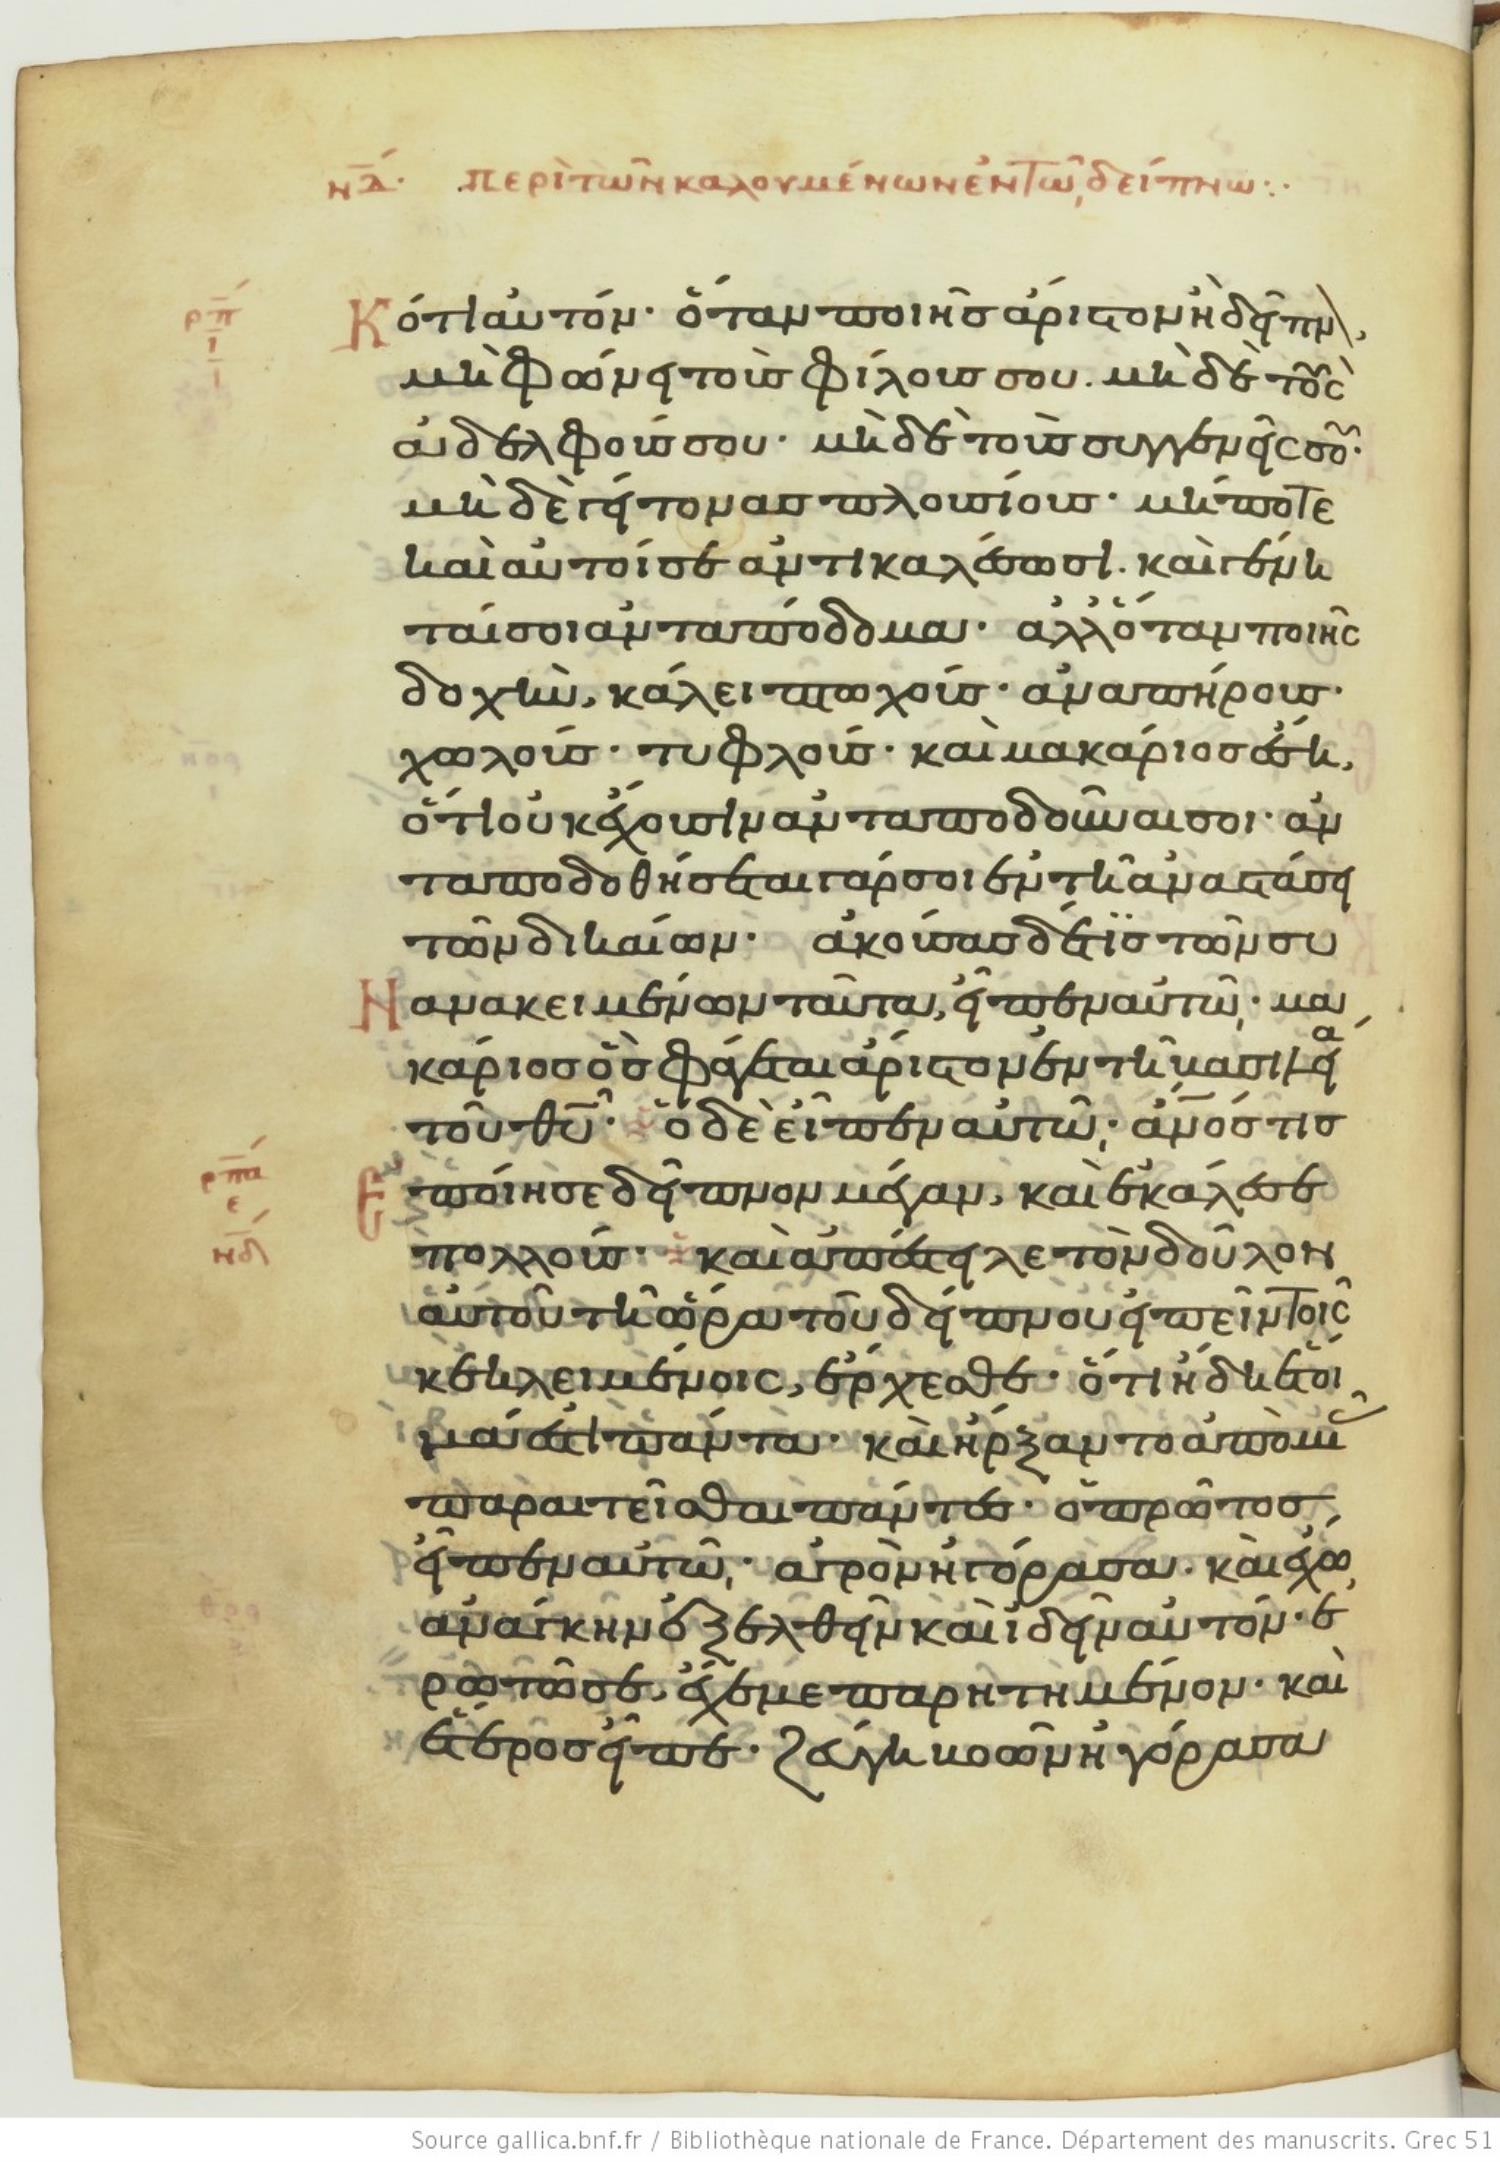 νδ· περὶ τῶν καλουμένων ἐν τῶ, δείπνω:·
ρπ
ι
Κότι αυτόν· ὅταν ποιῆς ἄριστον ἢ δεῖπν,
μὴ φώνει τοὺς φίλους σου. μὴ δὲ τοὺς
ἀδελφούς σου· μὴ δὲ τοὺς συγγενεῖς σοῦ·
μὴ δὲ γείτονας πλουσίους· μήποτε
καὶ αὐτοί σε ἀντικαλέσωσι. καὶ γένη
ταί σοι ἀνταπόδομα· ἀλλ ὅταν ποιῆς
δοχὴν, κάλει πτωχούς· ἀναπήρους·
χωλούς· τυφλούς· καὶ μακάριος ἔση,
ὅτι οὐκ ἔχουσιν ἀνταποδοῦναι σοι· ἀν
ταποδοθήσεται γάρ σοι ἐν τῆ ἀναστάσει
τῶν δικαίων· ἀκούσας δέ τϊς τῶν συ
Νανακειμένων ταῦτα, εἶπεν αὐτῶ,· μα
κάριος ὃς φάγεται ἄριστον ἐν τῆ βασιλεία
τοῦ θῡ· ὁ δὲ εἶπεν αὐτῶ,· ἀν̅ός τις
ρπα
ε
νδ
Ἐποίησε δεῖπνον μέγαν, καὶ ἐκάλεσε
πολλούς· καὶ ἀπέστειλε τὸν δοῦλον
αὐτοῦ τῆ ὥρα τοῦ δείπνου εἰπεῖν τοῖς
κεκλειμένοις, ἔρχεσθε· ὅτι ἤδη ἕτοι
μά ἐστι πάντα· καὶ ἤρξαντο ἀπὸ μιᾶς
παραιτεῖσθαι πάντες· ὁ πρῶτος
εἶπεν αὐτῶ,· ἀγρὸν ἠγόρασα. καὶ ἔχω,
ἀνάγκην ἐξελθεῖν καὶ ἰδεῖν αυτόν· ἐ
ρωτῶ σε, ἔχε με παρητημένον· καὶ
ἕτερος εἶπε· ζεύγη βοῶν ἠγόρασα
Source gallica.bnf.fr / Bibliothèque nationale de France. Département des manuscrits. Grec 51